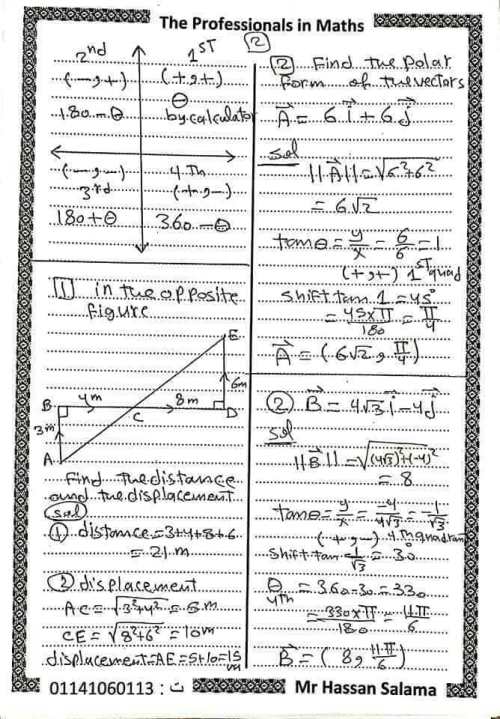 The Professionals in Maths
2
2nd
1ST
(-,+)
(+,+)
180-θ
θ
by calculator
(-,-)
3rd
4.Th
(+,-)
180+θ
360-θ
1 in the opposite
figure
E
B
4m
8m
6m
C
D
3m
A
Find the distance
and the displacement
sol
① distance=3+4+8+6
=21 m
② displacement
AC=√3²+4² =5m
CE=√8²+6² =10m
displacement=AE=5+10=15
m
2 Find the Polar
Form of the vectors
A = 6i+6j
sol
||A||=√6²+6²
= 6√2
tanθ=y/x=6/6=1
(+,+) 1ST quad
shift tan 1=45°
=45×π/180=π/4
A=(6√2,π/4)
② B=4√3i-4j
sol
||B||=√(4√3)²+(-4)²
= 8
tanθ=y/x=-4/4√3=-1/√3
(+,-) 4.Th quadran
shift tan 1/√3=30°
θ 4th=360-30=330
=330×π/180=11π/6
B=(8,11π/6)
01141060113 : ت
Mr Hassan Salama